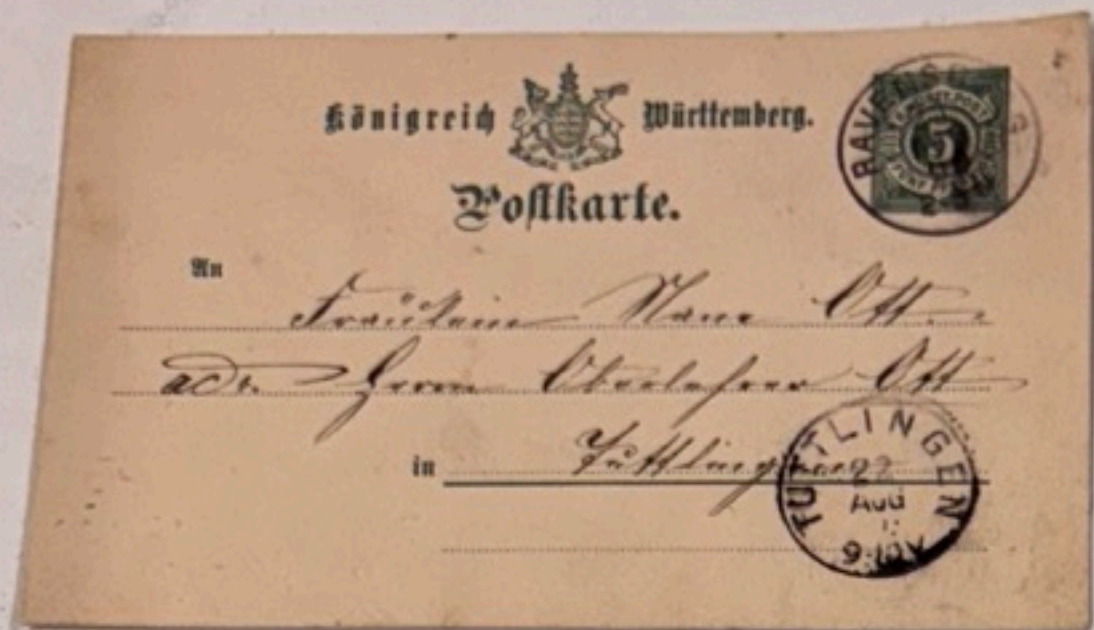 Königreich Württemberg.
Postkarte.
5
FÜNF
An
Fräulein Ott.
adr. Herrn Oberlehrer Ott
in Tuttlingen
TUTTLINGEN
22
AUG